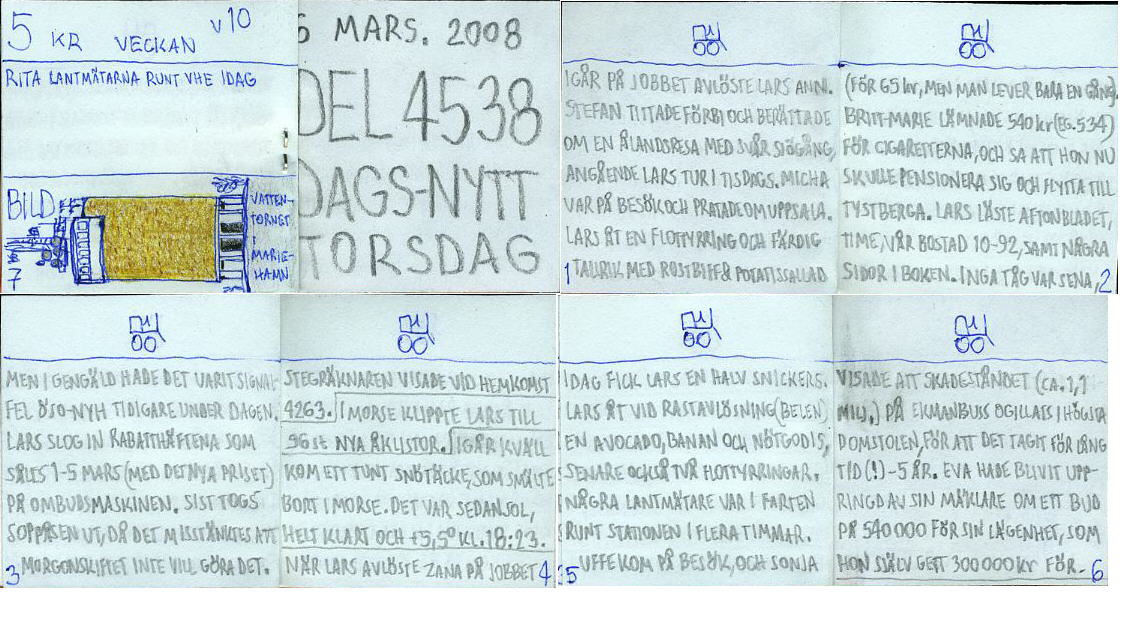 5 KR VECKAN V10
RITA LANTMÄTARNA RUNT VHE IDAG
BILD
VATTEN-
TORNET
I
MARIE-
HAMN
7
6 MARS. 2008
DEL 4538
DAGS-NYTT
TORSDAG
IGÅR PÅ JOBBET AVLÖSTE LARS ANN.
STEFAN TITTADE FÖRBI OCH BERÄTTADE
OM EN ÅLANDSRESA MED SVÅR SJÖGÅNG,
ANGÅENDE LARS TUR I TISDAGS. MICHA
VAR PÅ BESÖK OCH PRATADE OM UPPSALA.
LARS ÅT EN FLOTTYRRING OCH FÄRDIG
TALLRIK MED ROSTBIFF & POTATISSALLAD
1
(FÖR 65 kr, MEN MAN LEVER BARA EN GÅNG).
BRITT-MARIE LÄMNADE 540 kr (EG. 534)
FÖR CIGARETTERNA, OCH SA ATT HON NU
SKULLE PENSIONERA SIG OCH FLYTTA TILL
TYSTBERGA. LARS LÄSTE AFTONBLADET,
TIME, VÅR BOSTAD 10-92, SAMT NÅGRA
SIDOR I BOKEN. INGA TÅG VAR SENA,
2
MEN I GENGÄLD HADE DET VARIT SIGNAL-
FEL ÖSO-NYH TIDIGARE UNDER DAGEN.
LARS SLOG IN RABATTHÄFTENA SOM
SÅLTS 1-5 MARS (MED DET NYA PRISET)
PÅ OMBUDSMASKINEN. SIST TOGS
SOPPÅSEN UT, DÅ DET MISSTÄNKTES ATT
MORGONSKIFTET INTE VILL GÖRA DET.
3
STEGRÄKNAREN VISADE VID HEMKOMST
4263. I MORSE KLIPPTE LARS TILL
96 st NYA ÅKLISTOR. IGÅR KVÄLL
KOM ETT TUNT SNÖTÄCKE, SOM SMÄLTE
BORT I MORSE. DET VAR SEDAN SOL,
HELT KLART OCH +5,5° KL. 18:23.
NÄR LARS AVLÖSTE ZANA PÅ JOBBET
4
IDAG FICK LARS EN HALV SNICKERS.
LARS ÅT VID RASTAVLÖSNING (BELEN)
EN AVOCADO, BANAN OCH NÖTGODIS,
SENARE OCKSÅ TVÅ FLOTTYRRINGAR.
NÅGRA LANTMÄTARE VAR I FARTEN
RUNT STATIONEN I FLERA TIMMAR.
UFFE KOM PÅ BESÖK, OCH SONJA
5
VISADE ATT SKADESTÅNDET (CA. 1,1
MILJ.) PÅ EKMANBUSS OGILLATS I HÖGSTA
DOMSTOLEN, FÖR ATT DET TAGIT FÖR LÅNG
TID (!) - 5 ÅR. EVA HADE BLIVIT UPP-
RINGD AV SIN MÄKLARE OM ETT BUD
PÅ 540 000 FÖR SIN LÄGENHET, SOM
HON SJÄLV GETT 300 000 kr FÖR.
6